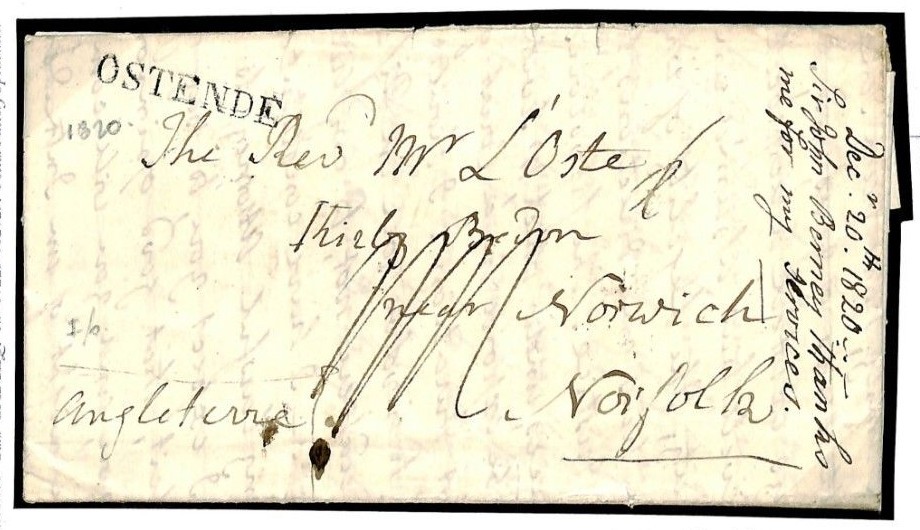 OSTENDE
1820.
The Revd Mr L'Oste
near Norwich
Norfolk
1/6
angleterre
Decr. 20th. 1820
Sir John Berney thanks
me for my services.